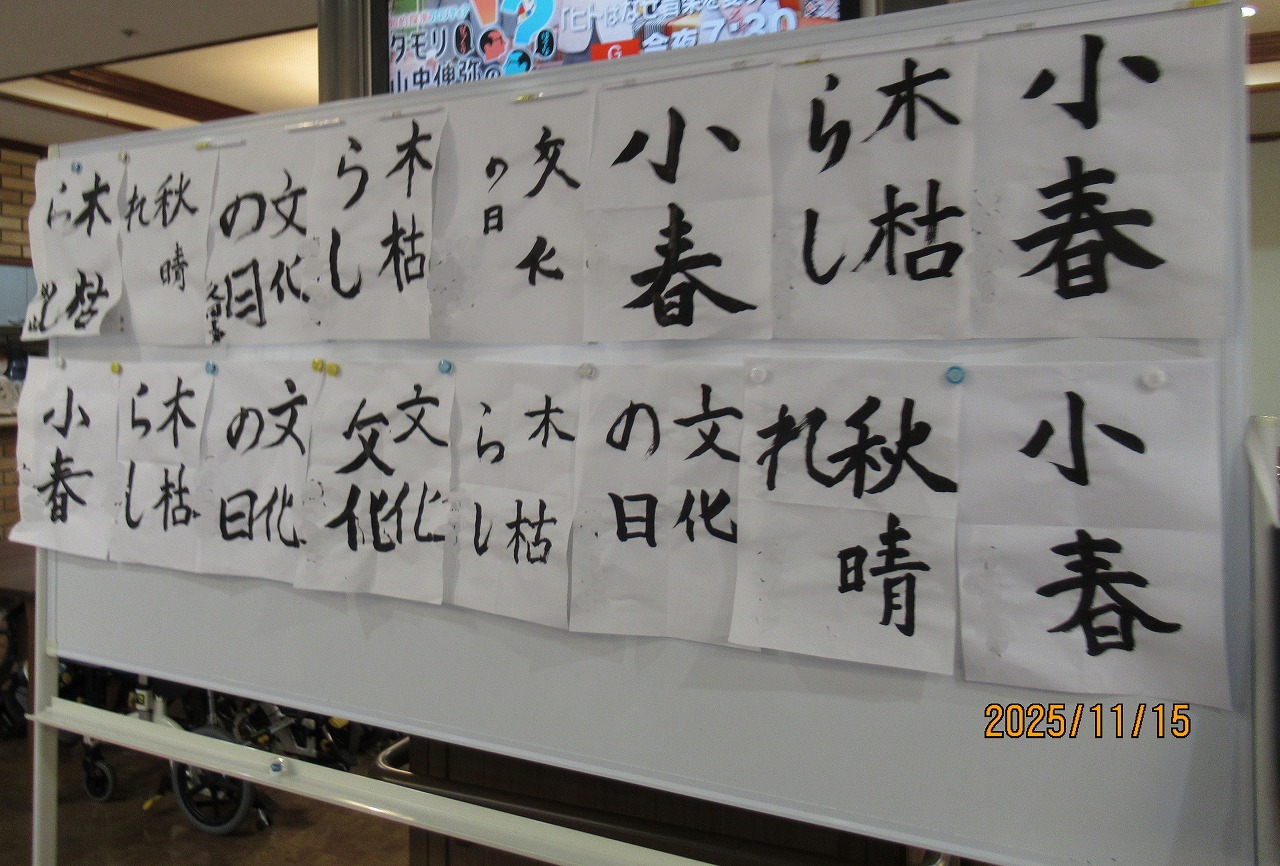 タモリ
山中伸弥の
!?
「ヒトはなぜ音楽を愛す
G
今夜7:30
小春
木枯
らし
小春
文化
の日
木枯
らし
文化
の日
秋晴
れ
木枯
らし
小春
秋晴
れ
文化
の日
木枯
らし
文化
文化
文化
の日
木枯
らし
小春
2025/11/15